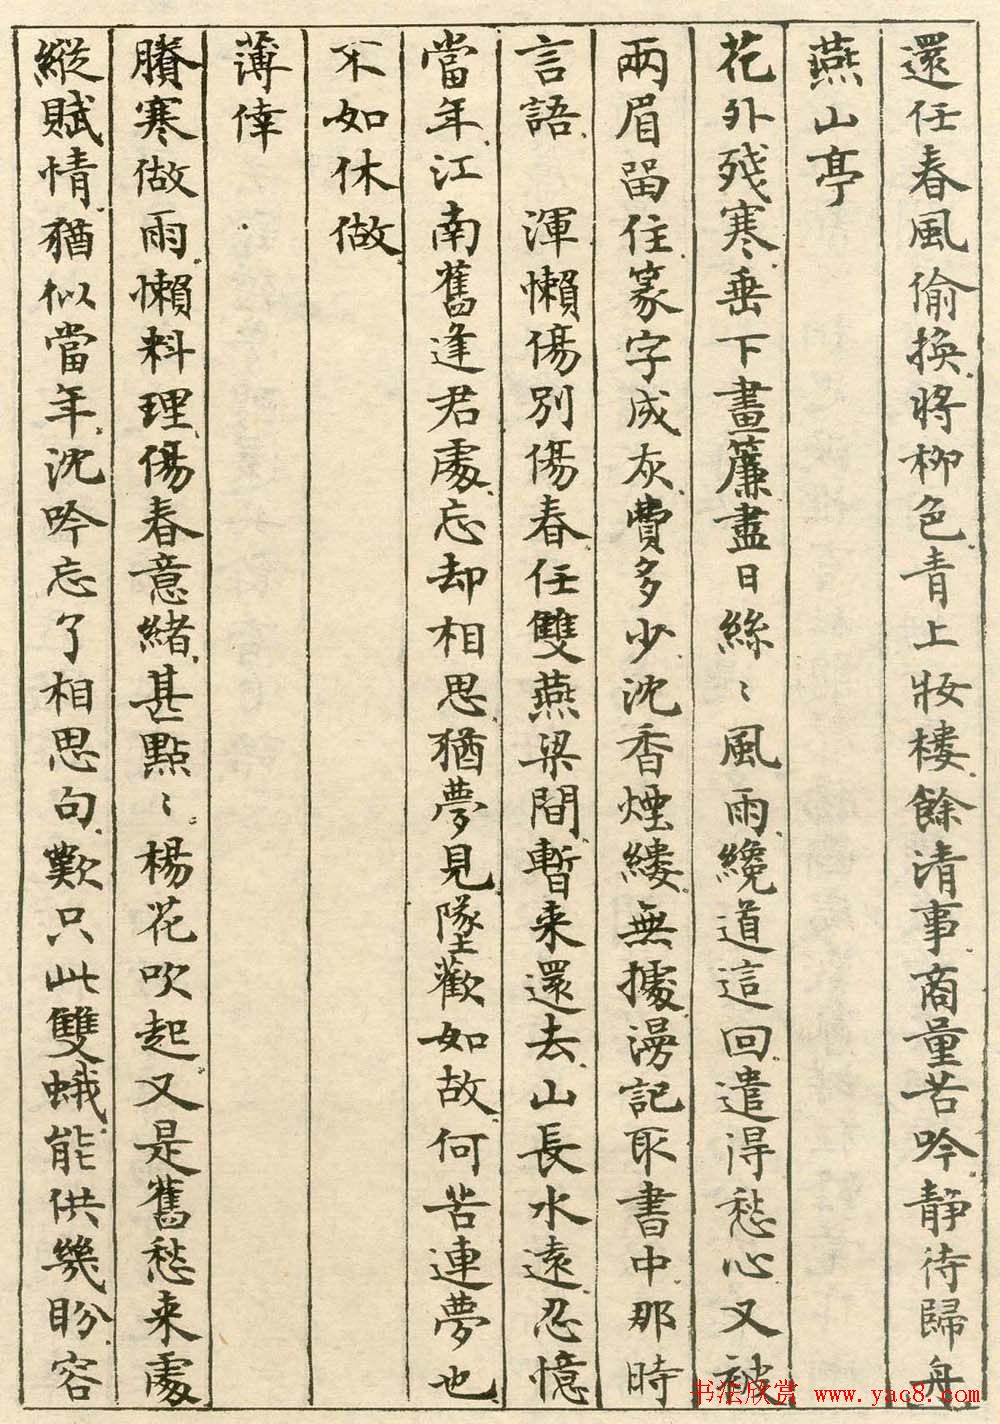 還任春風偷換將柳色青上妝樓餘清事商量苦吟靜待歸舟
燕山亭
花外殘寒垂下畫簾盡日絲〻風雨纔道這回遣得愁心又被
兩眉留住篆字成灰費多少沈香煙縷無據漫記取書中那時
言語 渾懶傷別傷春任雙燕梁間暫来還去山長水遠忍憶
當年江南舊逢君處忘却相思猶夢見墜歡如故何苦連夢也
不如休做
薄倖
賸寒做雨懶料理傷春意緒甚點〻楊花吹起又是舊愁来處
縱賦情猶似當年沈吟忘了相思句歎只此雙蛾能供幾盼容
书法欣赏 www.yac8.com